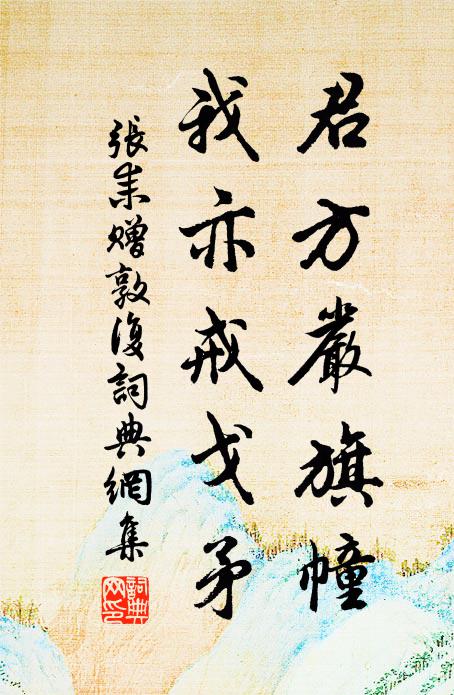 君方嚴旗幢
我亦戒戈矛
張耒贈敦復詞典網集
詞典網印